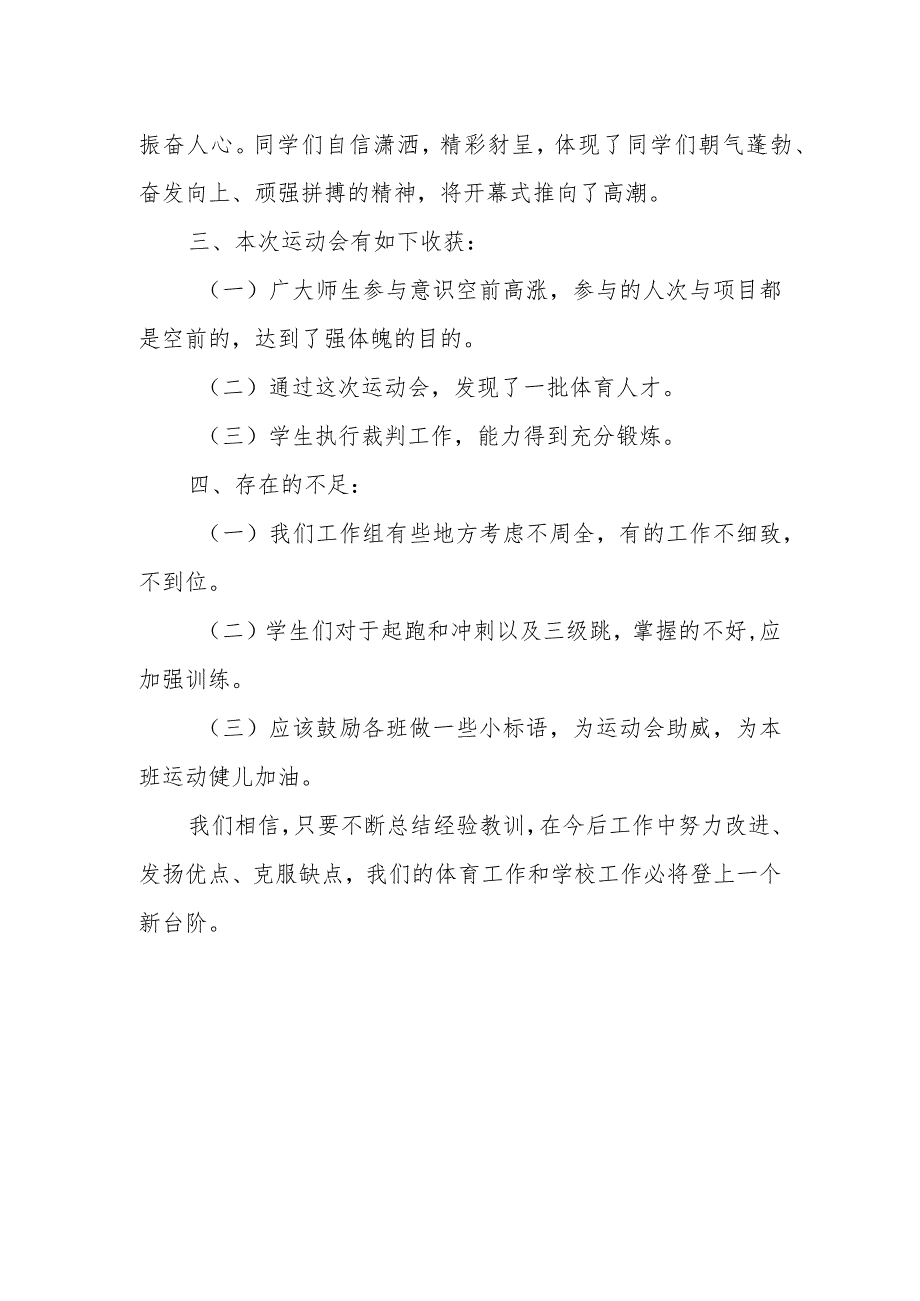 振奋人心。同学们自信潇洒，精彩豺呈，体现了同学们朝气蓬勃、
奋发向上、顽强拼搏的精神，将开幕式推向了高潮。
三、本次运动会有如下收获：
（一）广大师生参与意识空前高涨，参与的人次与项目都
是空前的，达到了强体魄的目的。
（二）通过这次运动会，发现了一批体育人才。
（三）学生执行裁判工作，能力得到充分锻炼。
四、存在的不足：
（一）我们工作组有些地方考虑不周全，有的工作不细致，
不到位。
（二）学生们对于起跑和冲刺以及三级跳，掌握的不好,应
加强训练。
（三）应该鼓励各班做一些小标语，为运动会助威，为本
班运动健儿加油。
我们相信，只要不断总结经验教训，在今后工作中努力改进、
发扬优点、克服缺点，我们的体育工作和学校工作必将登上一个
新台阶。